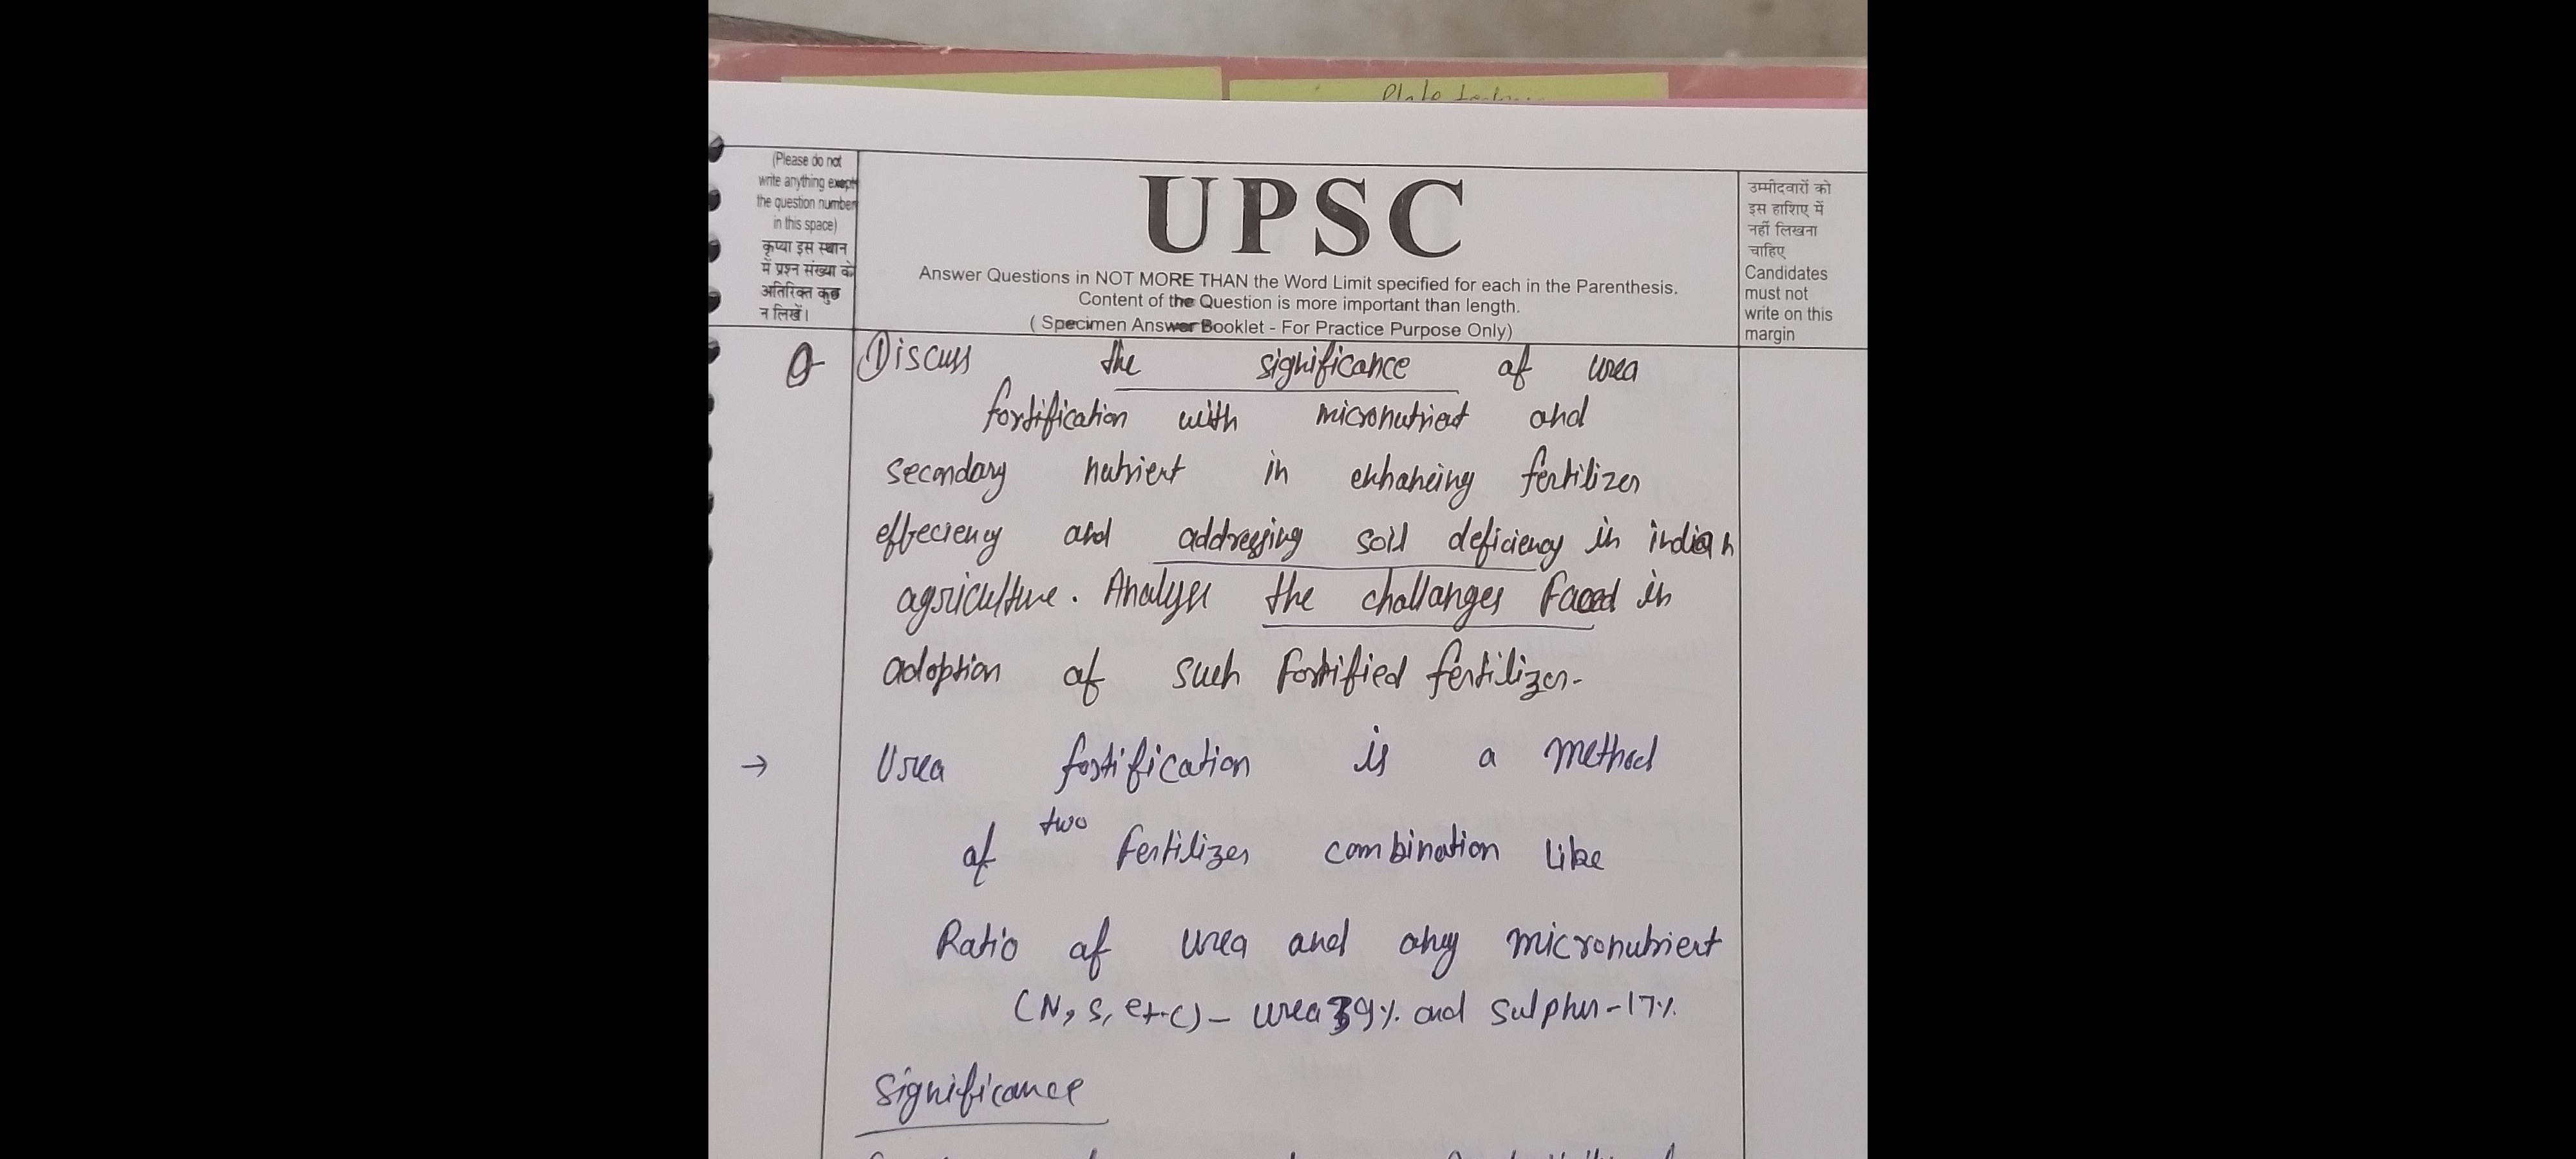 (Please do not
write anything exept
the question number
in this space)
कृप्या इस स्थान
में प्रश्न संख्या के
अतिरिक्त कुछ
न लिखें।
UPSC
Answer Questions in NOT MORE THAN the Word Limit specified for each in the Parenthesis.
Content of the Question is more important than length.
( Specimen Answer Booklet - For Practice Purpose Only)
उम्मीदवारों को
इस हाशिए में
नहीं लिखना
चाहिए
Candidates
must not
write on this
margin
Q Discuss the significance of urea
fortification with micronutrient and
secondary nutrient in enhancing fertilizer
effeciency and addressing soil deficiency in indian
agriculture. Analyse the challanges faced in
adoption of such fortified fertilizer.
→ Urea fortification is a method
of two fertilizer combination like
Ratio of urea and any micronutrient
(N, S, etc) - urea 39% and sulphur - 17%
Significance